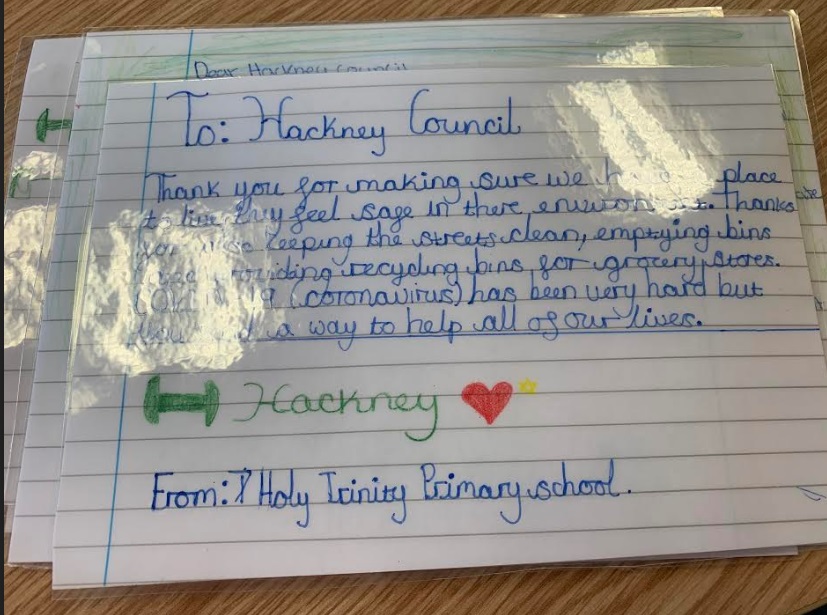 Dear Hackney Council
To: Hackney Council
Thank you for making sure we place
to live they feel sage in there . Thanks
keeping the streets clean, emptying bins
providing recycling bins for grocery stores.
19 (coronavirus) has been very hard but
a way to help all of our lives.
Hackney
From: Holy Trinity Primary school.